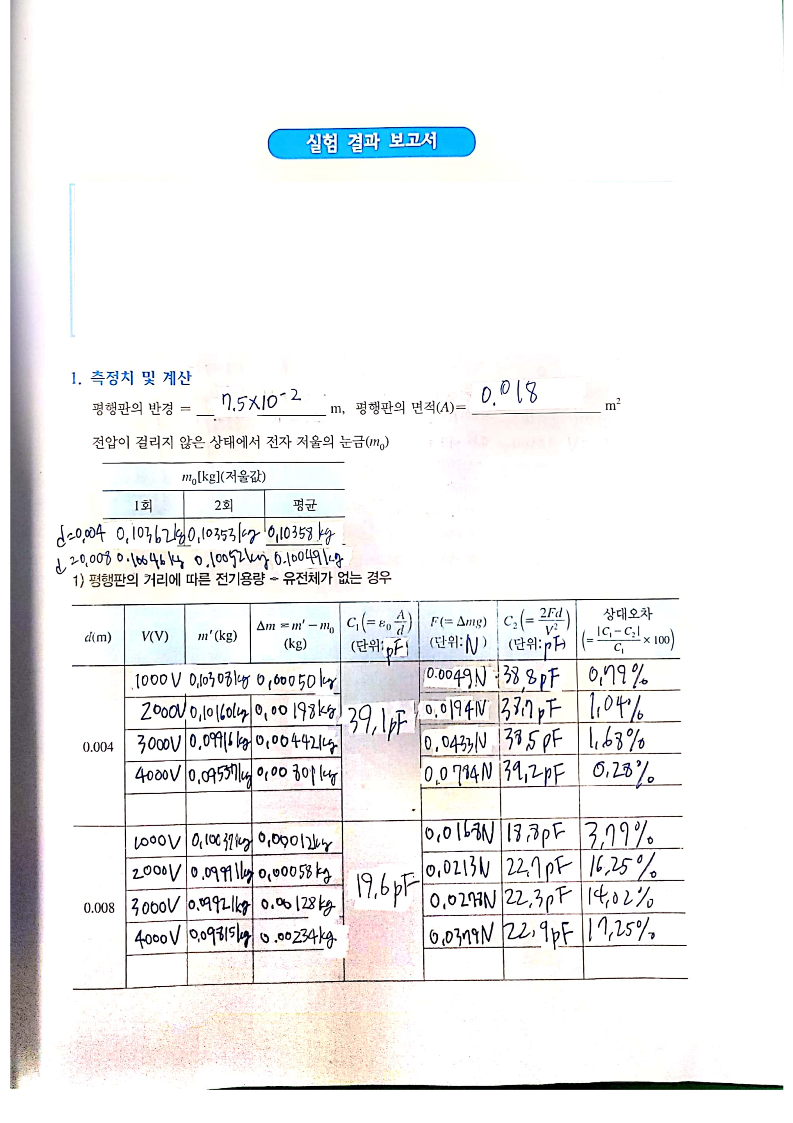 실험 결과 보고서
1. 측정치 및 계산
평행판의 반경 = 7.5×10⁻² m, 평행판의 면적(A)= 0.018 m²
전압이 걸리지 않은 상태에서 전자 저울의 눈금(m₀)
m₀[kg](저울값)
1회 2회 평균
d=0.004 0.10362kg 0.10353kg 0.10358kg
d=0.008 0.10046kg 0.10052kg 0.10049kg
1) 평행판의 거리에 따른 전기용량 - 유전체가 없는 경우
d(m) V(V) m′(kg) Δm = m′ − m₀ (kg) C₁(= ε₀ A/d) (단위: pF) F(= Δmg) (단위: N) C₂(= 2Fd/V²) (단위: pF) 상대오차 (= |C₁ − C₂|/C₁ × 100)
0.004 39.1pF
1000V 0.10308kg 0.00050kg 0.0049N 38.8pF 0.79%
2000V 0.10160kg 0.00198kg 0.0194N 38.7pF 1.04%
3000V 0.09916kg 0.00442kg 0.0433N 38.5pF 1.68%
4000V 0.09537kg 0.00801kg 0.0784N 39.2pF 0.28%
0.008 19.6pF
1000V 0.10037kg 0.00012kg 0.0168N 18.8pF 3.79%
2000V 0.09991kg 0.00058kg 0.0213N 22.7pF 16.25%
3000V 0.09921kg 0.00128kg 0.0278N 22.3pF 14.02%
4000V 0.09815kg 0.00234kg 0.0379N 22.9pF 17.25%